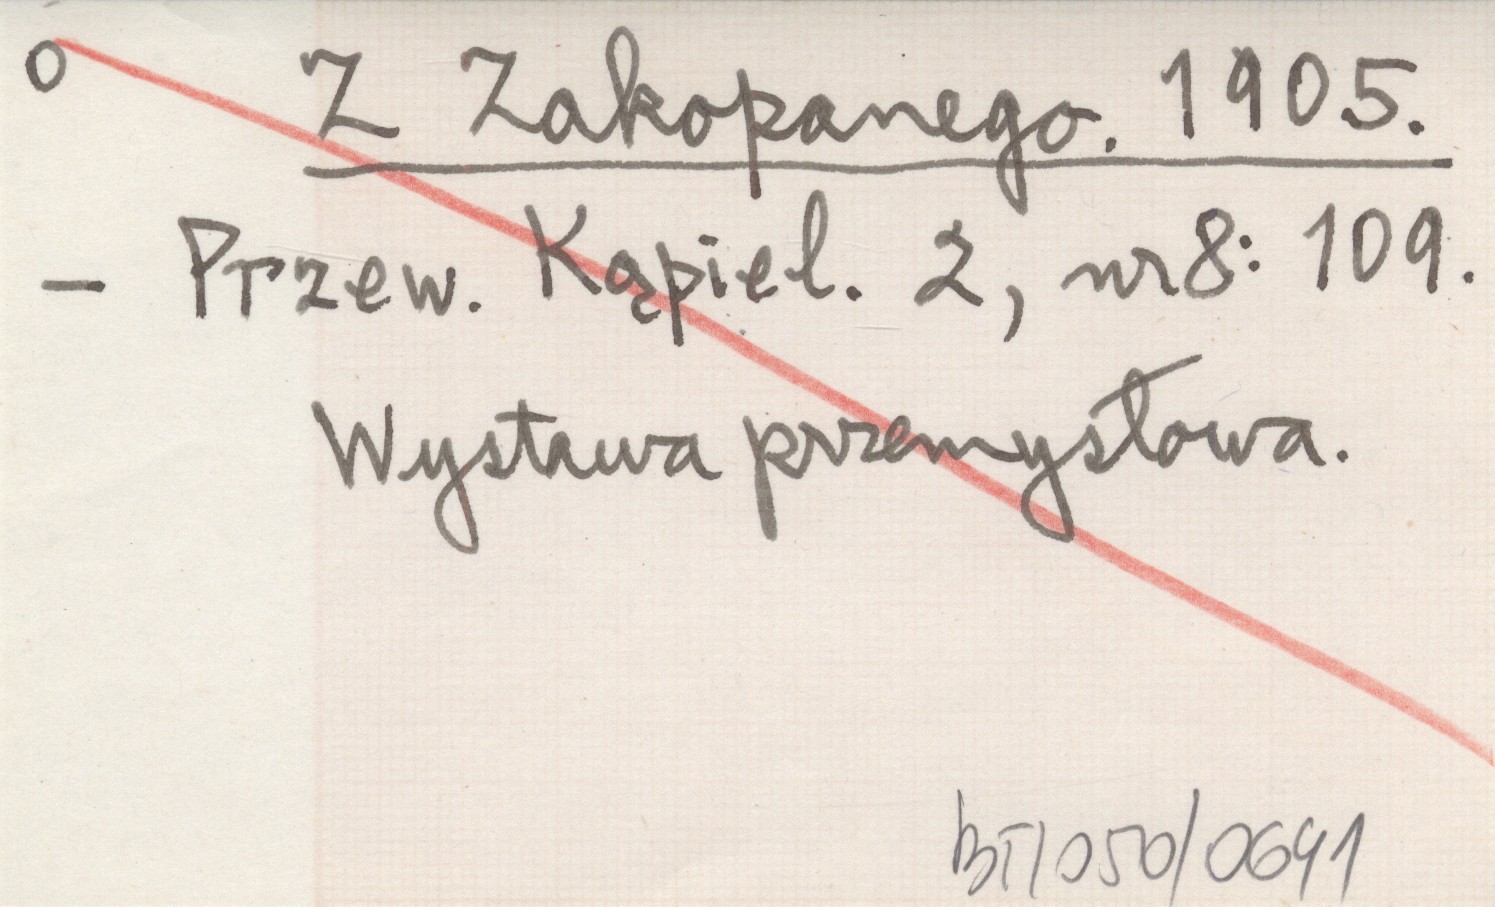 o Z Zakopanego. 1905.
— Przew. Kąpiel. 2, nr 8: 109.
Wystawa przemysłowa.
BT/050/0641